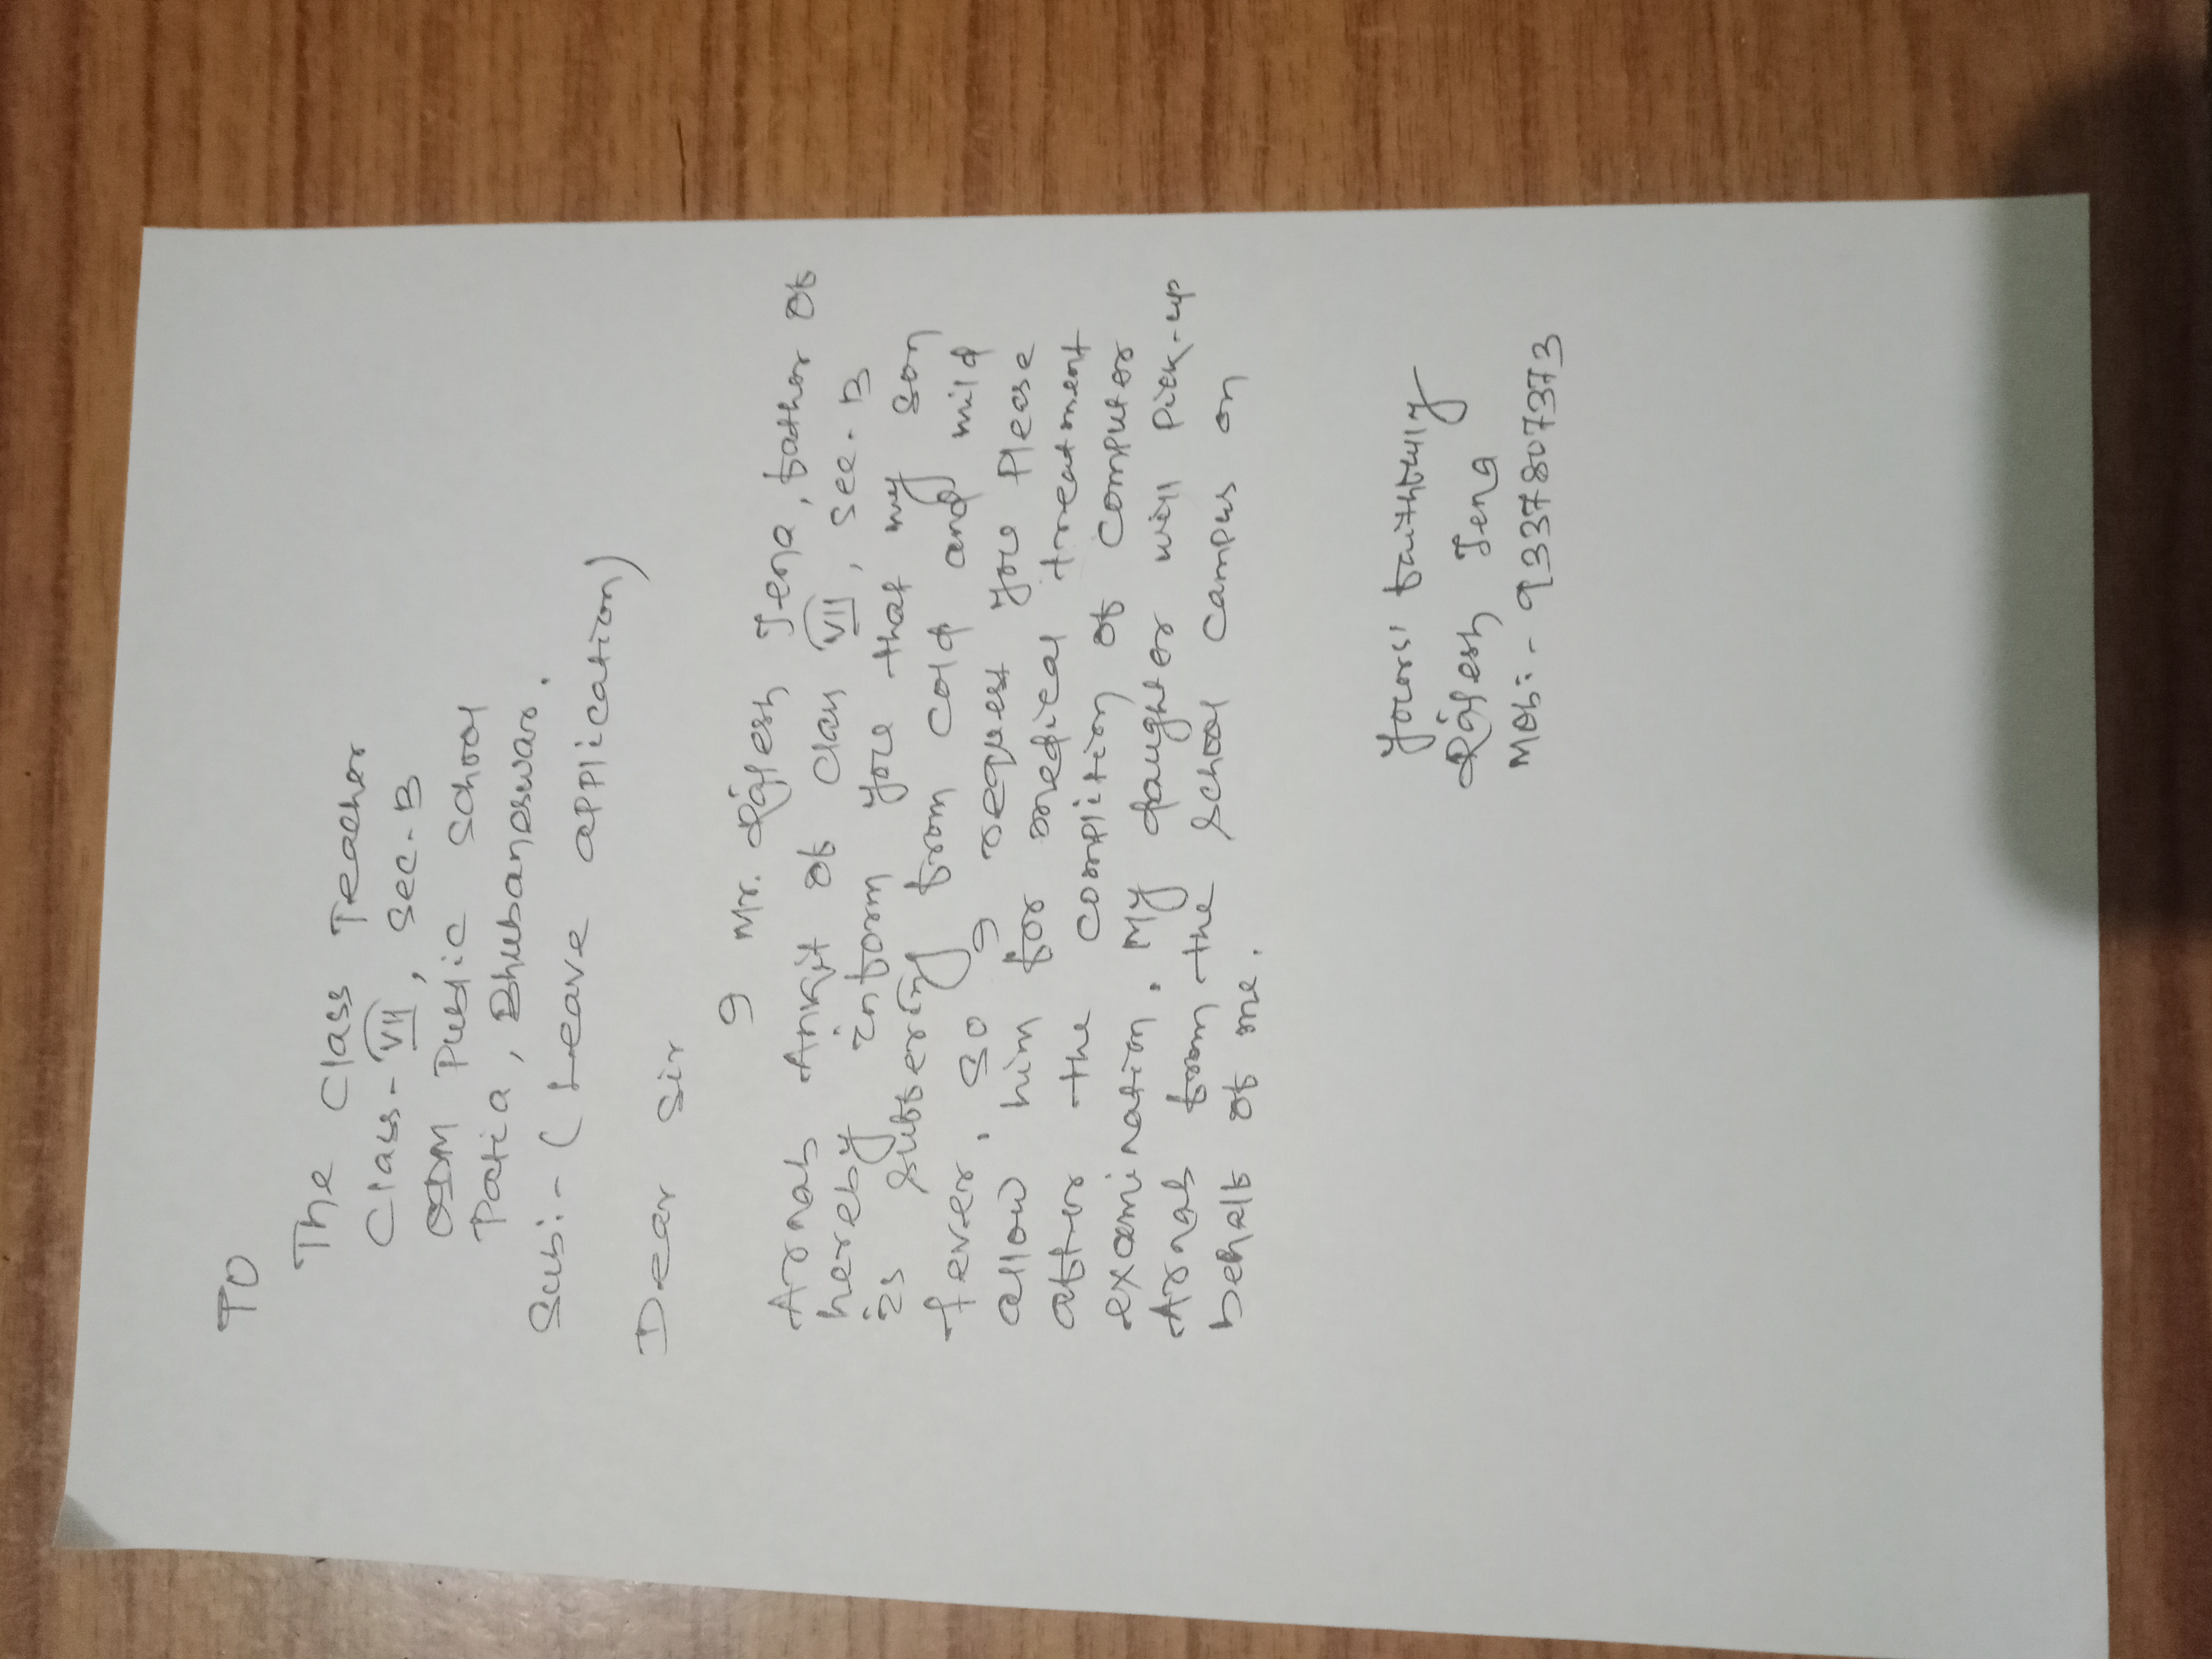 To
The Class Teacher
Class-VII, Sec.B
ODM Public School
Patia, Bhubaneswar.
Sub:- (Leave application)
Dear Sir
I Mr. Rajesh Jena, father of
Arnab Ankit of class VII, Sec.B
hereby inform you that my son
is suffering from cold and mild
fever. So I request you please
allow him for medical treatment
after the complition of computer
examination. My daughter will pick-up
Arnab from the school campus on
behalf of me.
Yours' faithfully
Rajesh Jena
Mob:- 9337807373